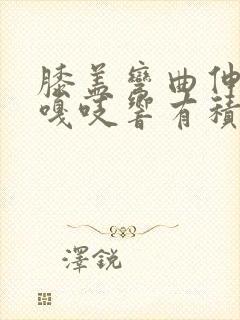 膝盖彎曲伸
嘎吱響有積
澤銳